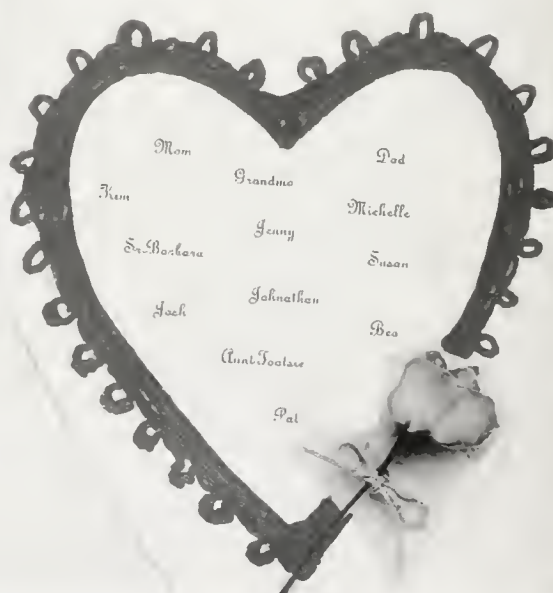 Mom
Dad
Grandma
Kem
Michelle
Jenny
Sr. Barbara
Susan
Johnathan
Jack
Bea
Pat